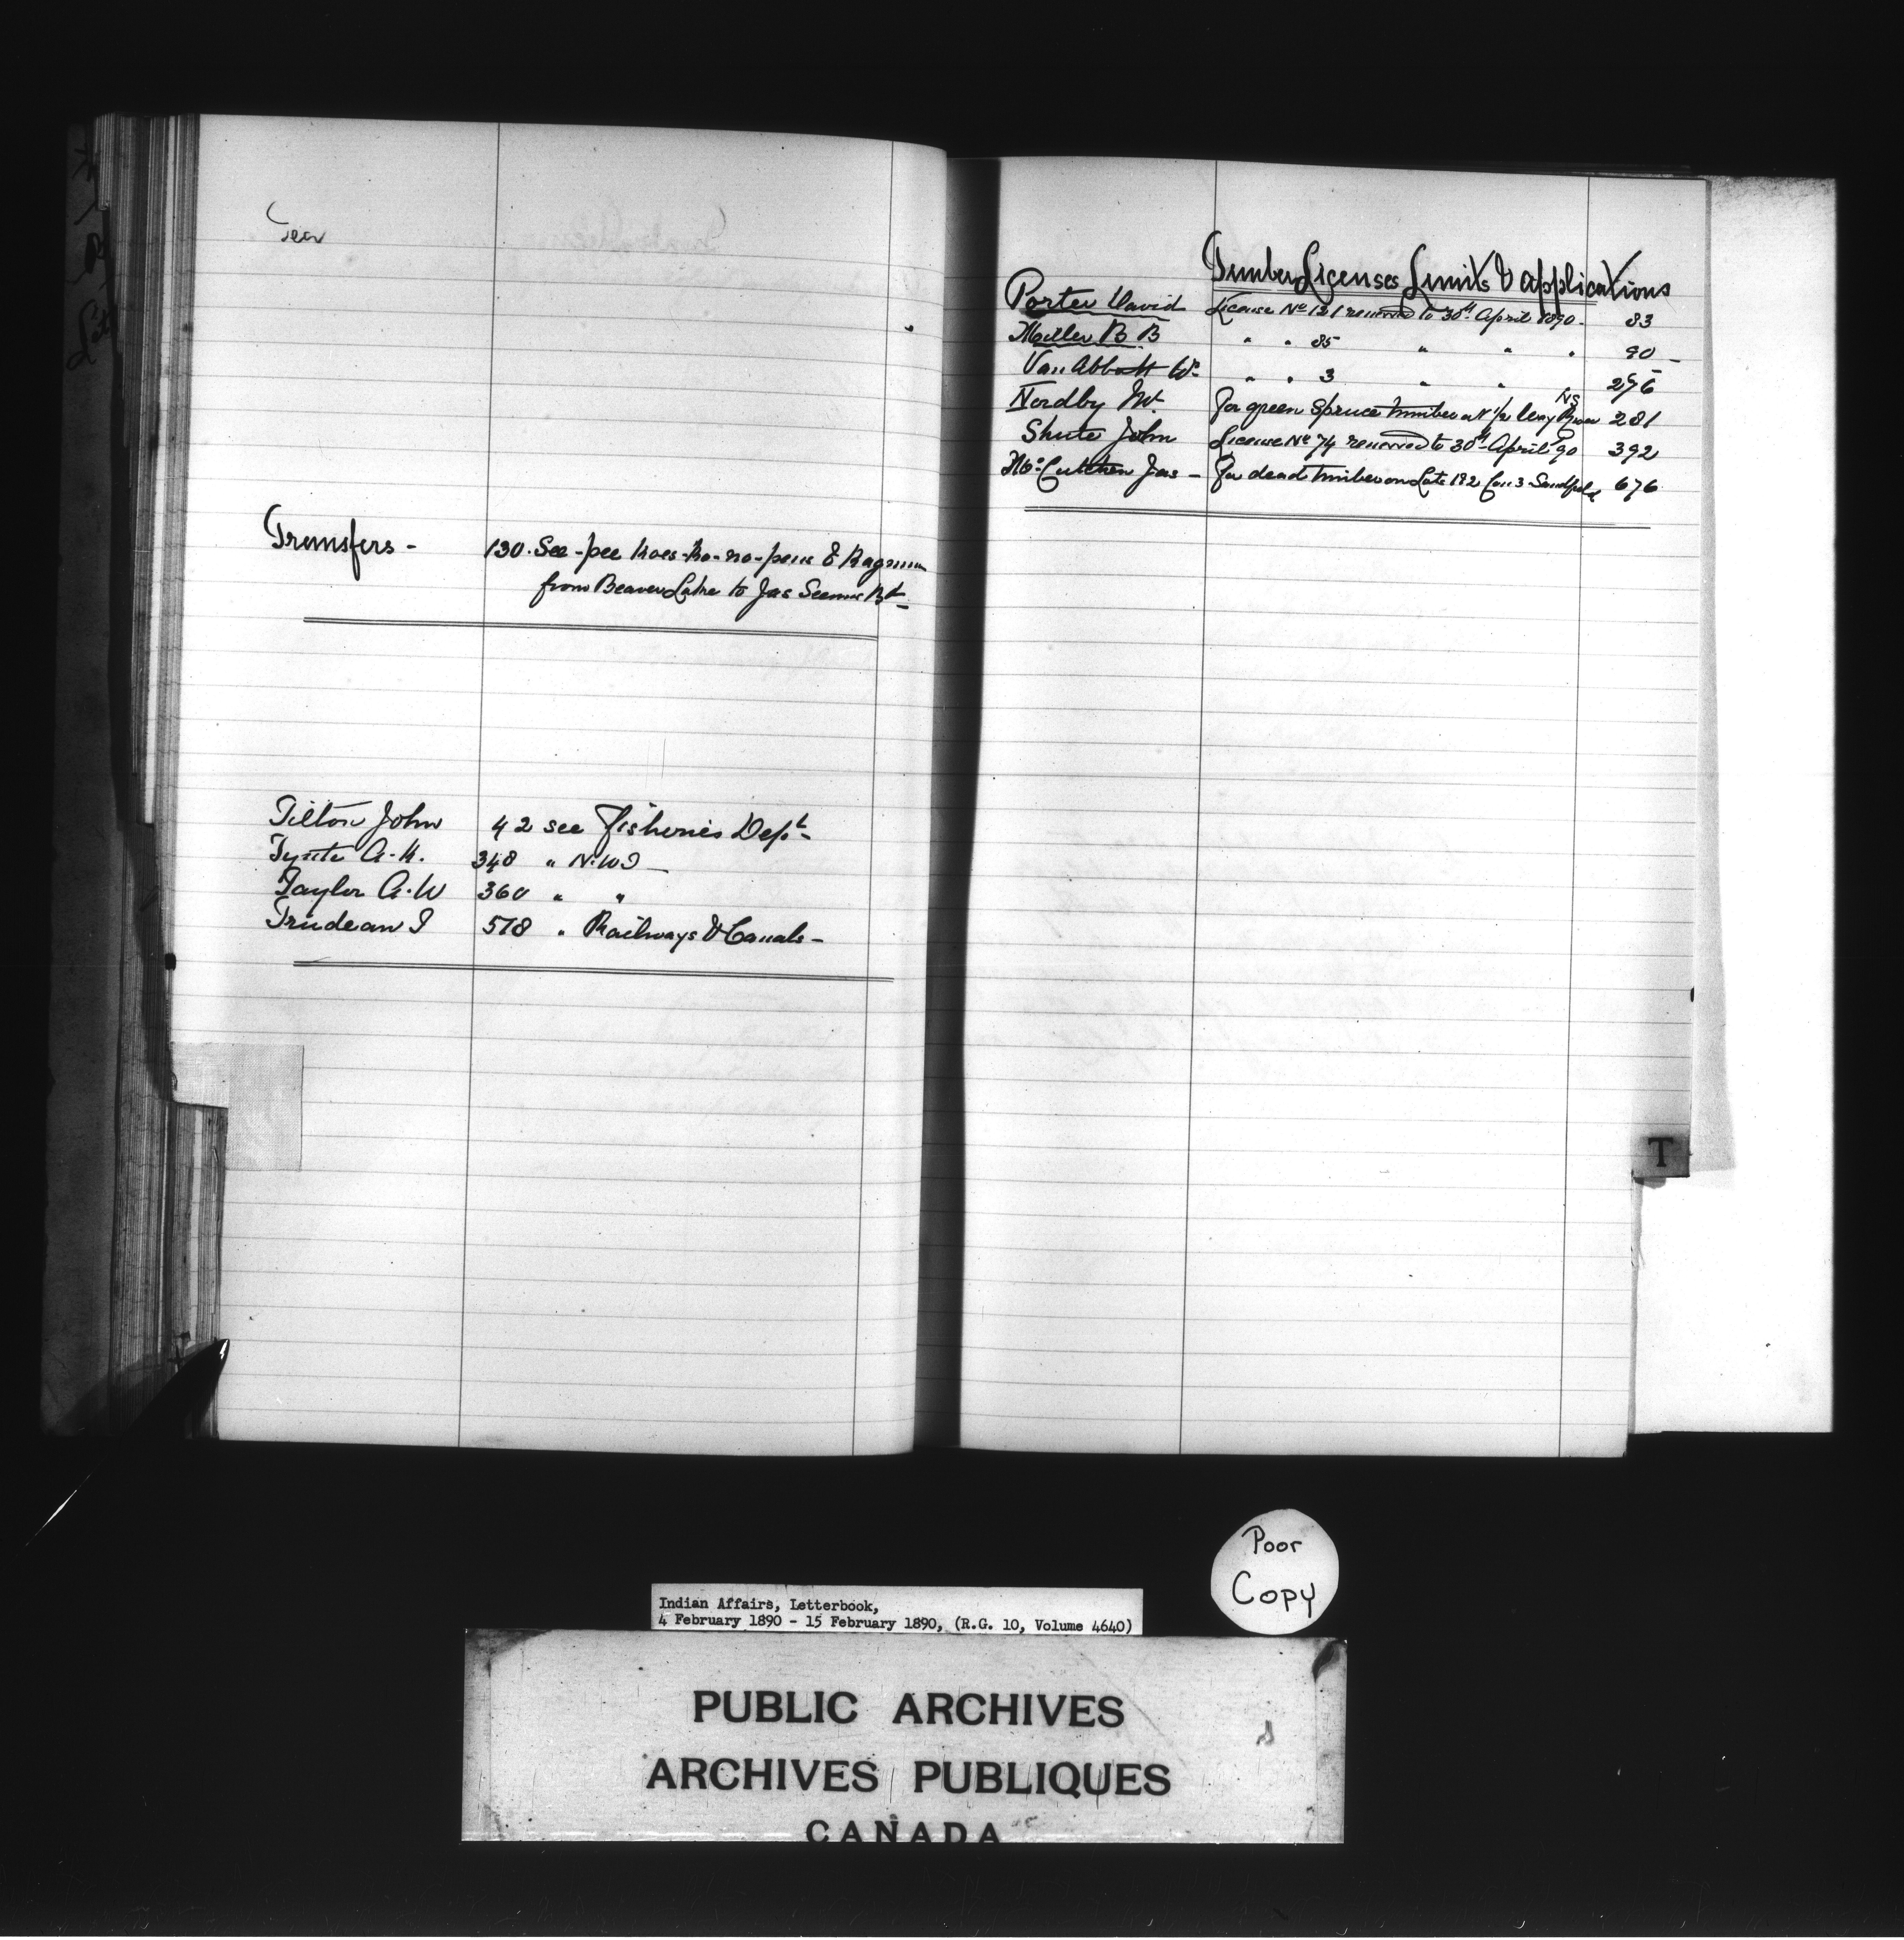 Transfers - 130. See-pee
from Beaver Lake to Jas
Tilton John 42 see Fisheries Dept
A. H. 348 " N.W.T
Taylor A. W 360 " "
Trudeau T 578 " Railways & Canals -
Timber Licenses Limits & Applications
Porter David License No 121 renewed to 30th April 1890. 83
Miller B B " " 85 " " " 90
Van Abbott Wm " " 3 " " 276
Nordby For green Spruce timber 281
Shute John License No 74 renewed to 30th April 90 392
McCutchen Jas - For dead timber on Lots 1 & 2 Con 3 Sandfield 676
T
Poor
Copy
Indian Affairs, Letterbook,
4 February 1890 - 15 February 1890, (R.G. 10, Volume 4640)
PUBLIC ARCHIVES
ARCHIVES PUBLIQUES
CANADA